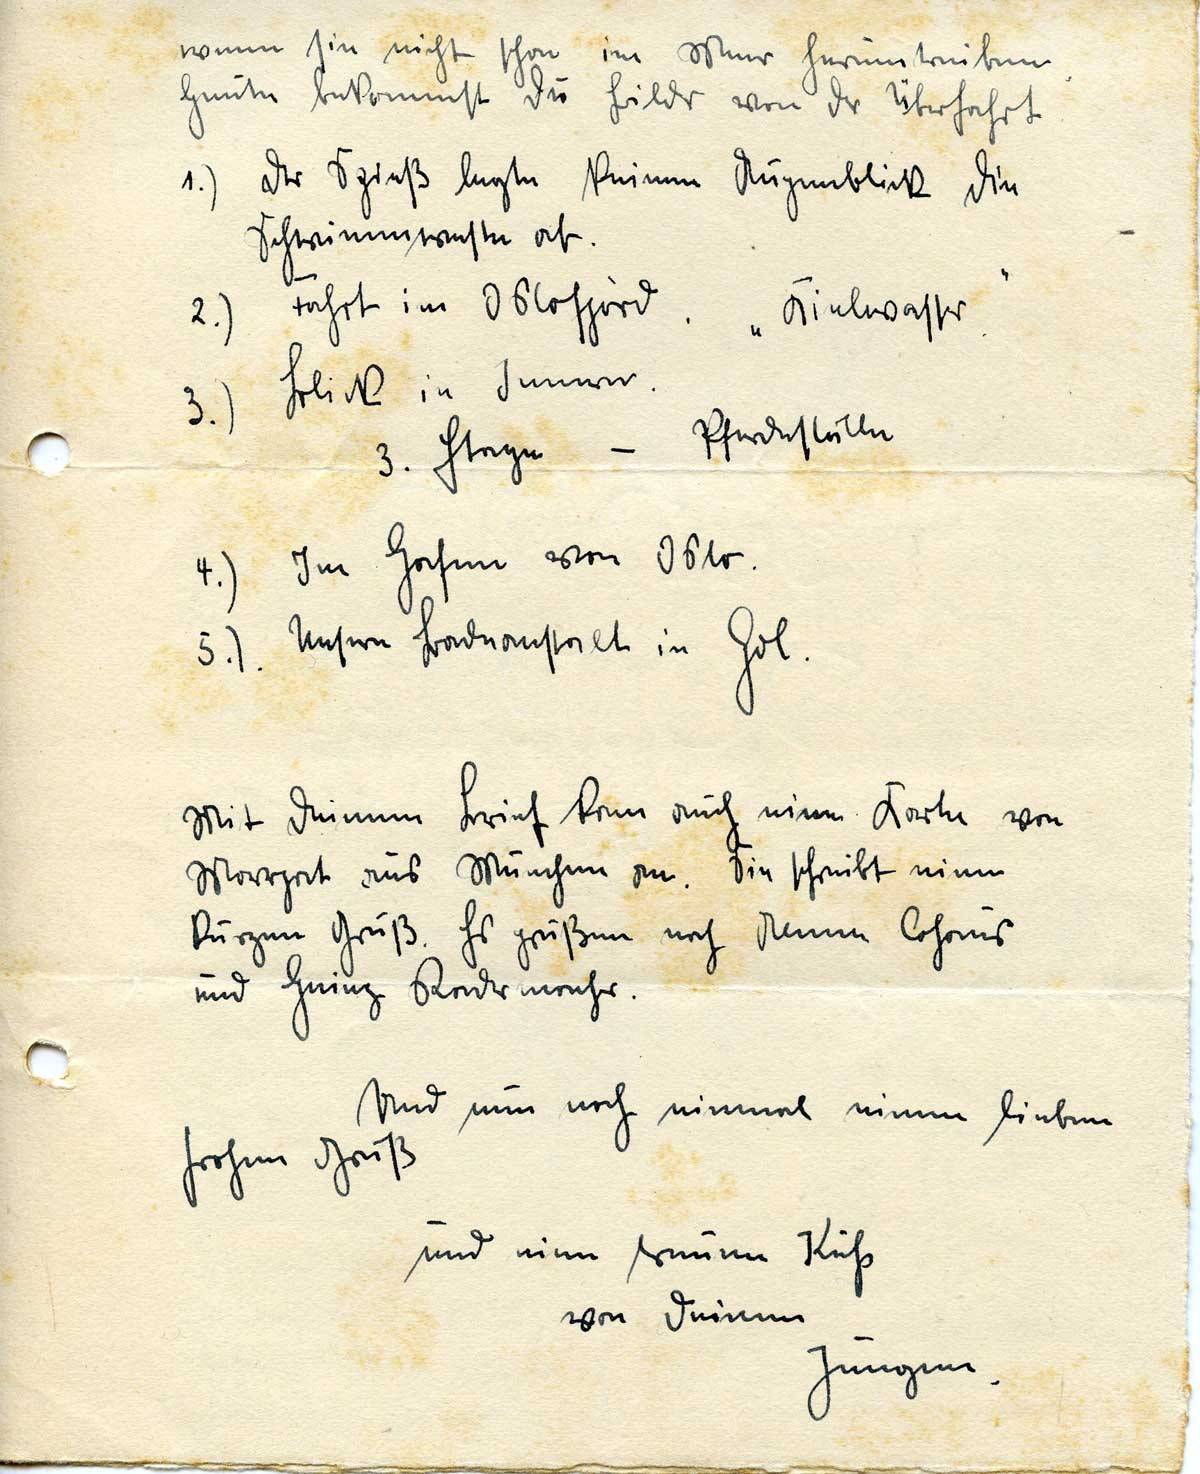 wenn sie nicht schon im Meer herumtreiben.
Heute bekommst Du Bilder von der Überfahrt
1.) Der Spieß legte keinen Augenblick die
Schwimmweste ab.
2.) Fahrt im Oslofjord. „Kielwasser"
3.) Blick in Innere.
3. Etage – Pferdeställe
4.) Im Hafen von Oslo.
5.). Unsere Badeanstalt in Gol.
Mit Deinem Brief kam auch eine Karte von
Margret aus München an. Sie schreibt einen
kurzen Gruß. Es grüßen noch
und Heinz
Und nun noch einmal einen lieben
frohen Gruß
und einen Kuß
von Deinem
Jungen.